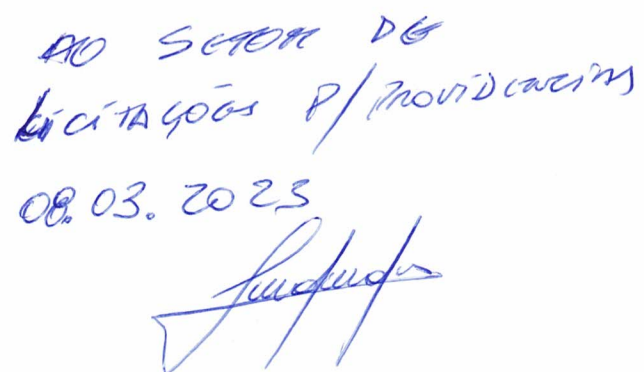 AO SETOR DE
LICITAÇÕES P/ PROVIDENCIAS
08.03.2023